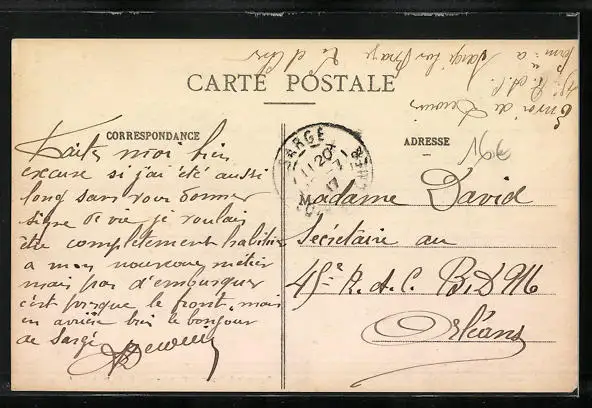 CARTE POSTALE
CORRESPONDANCE
ADRESSE
Faites moi bien
excuse si j'ai été aussi
long sans vous donner
signe de vie je voulais
être complètement habitué
a mon nouveau métier
mais pas d'embusquer
c'est presque le front, mais
en arrière bien le bonjour
de Sargé
SARGÉ
11 20
Madame David
Secrétaire au
45e R.A.C. B.D.M
Orléans
Envoi de